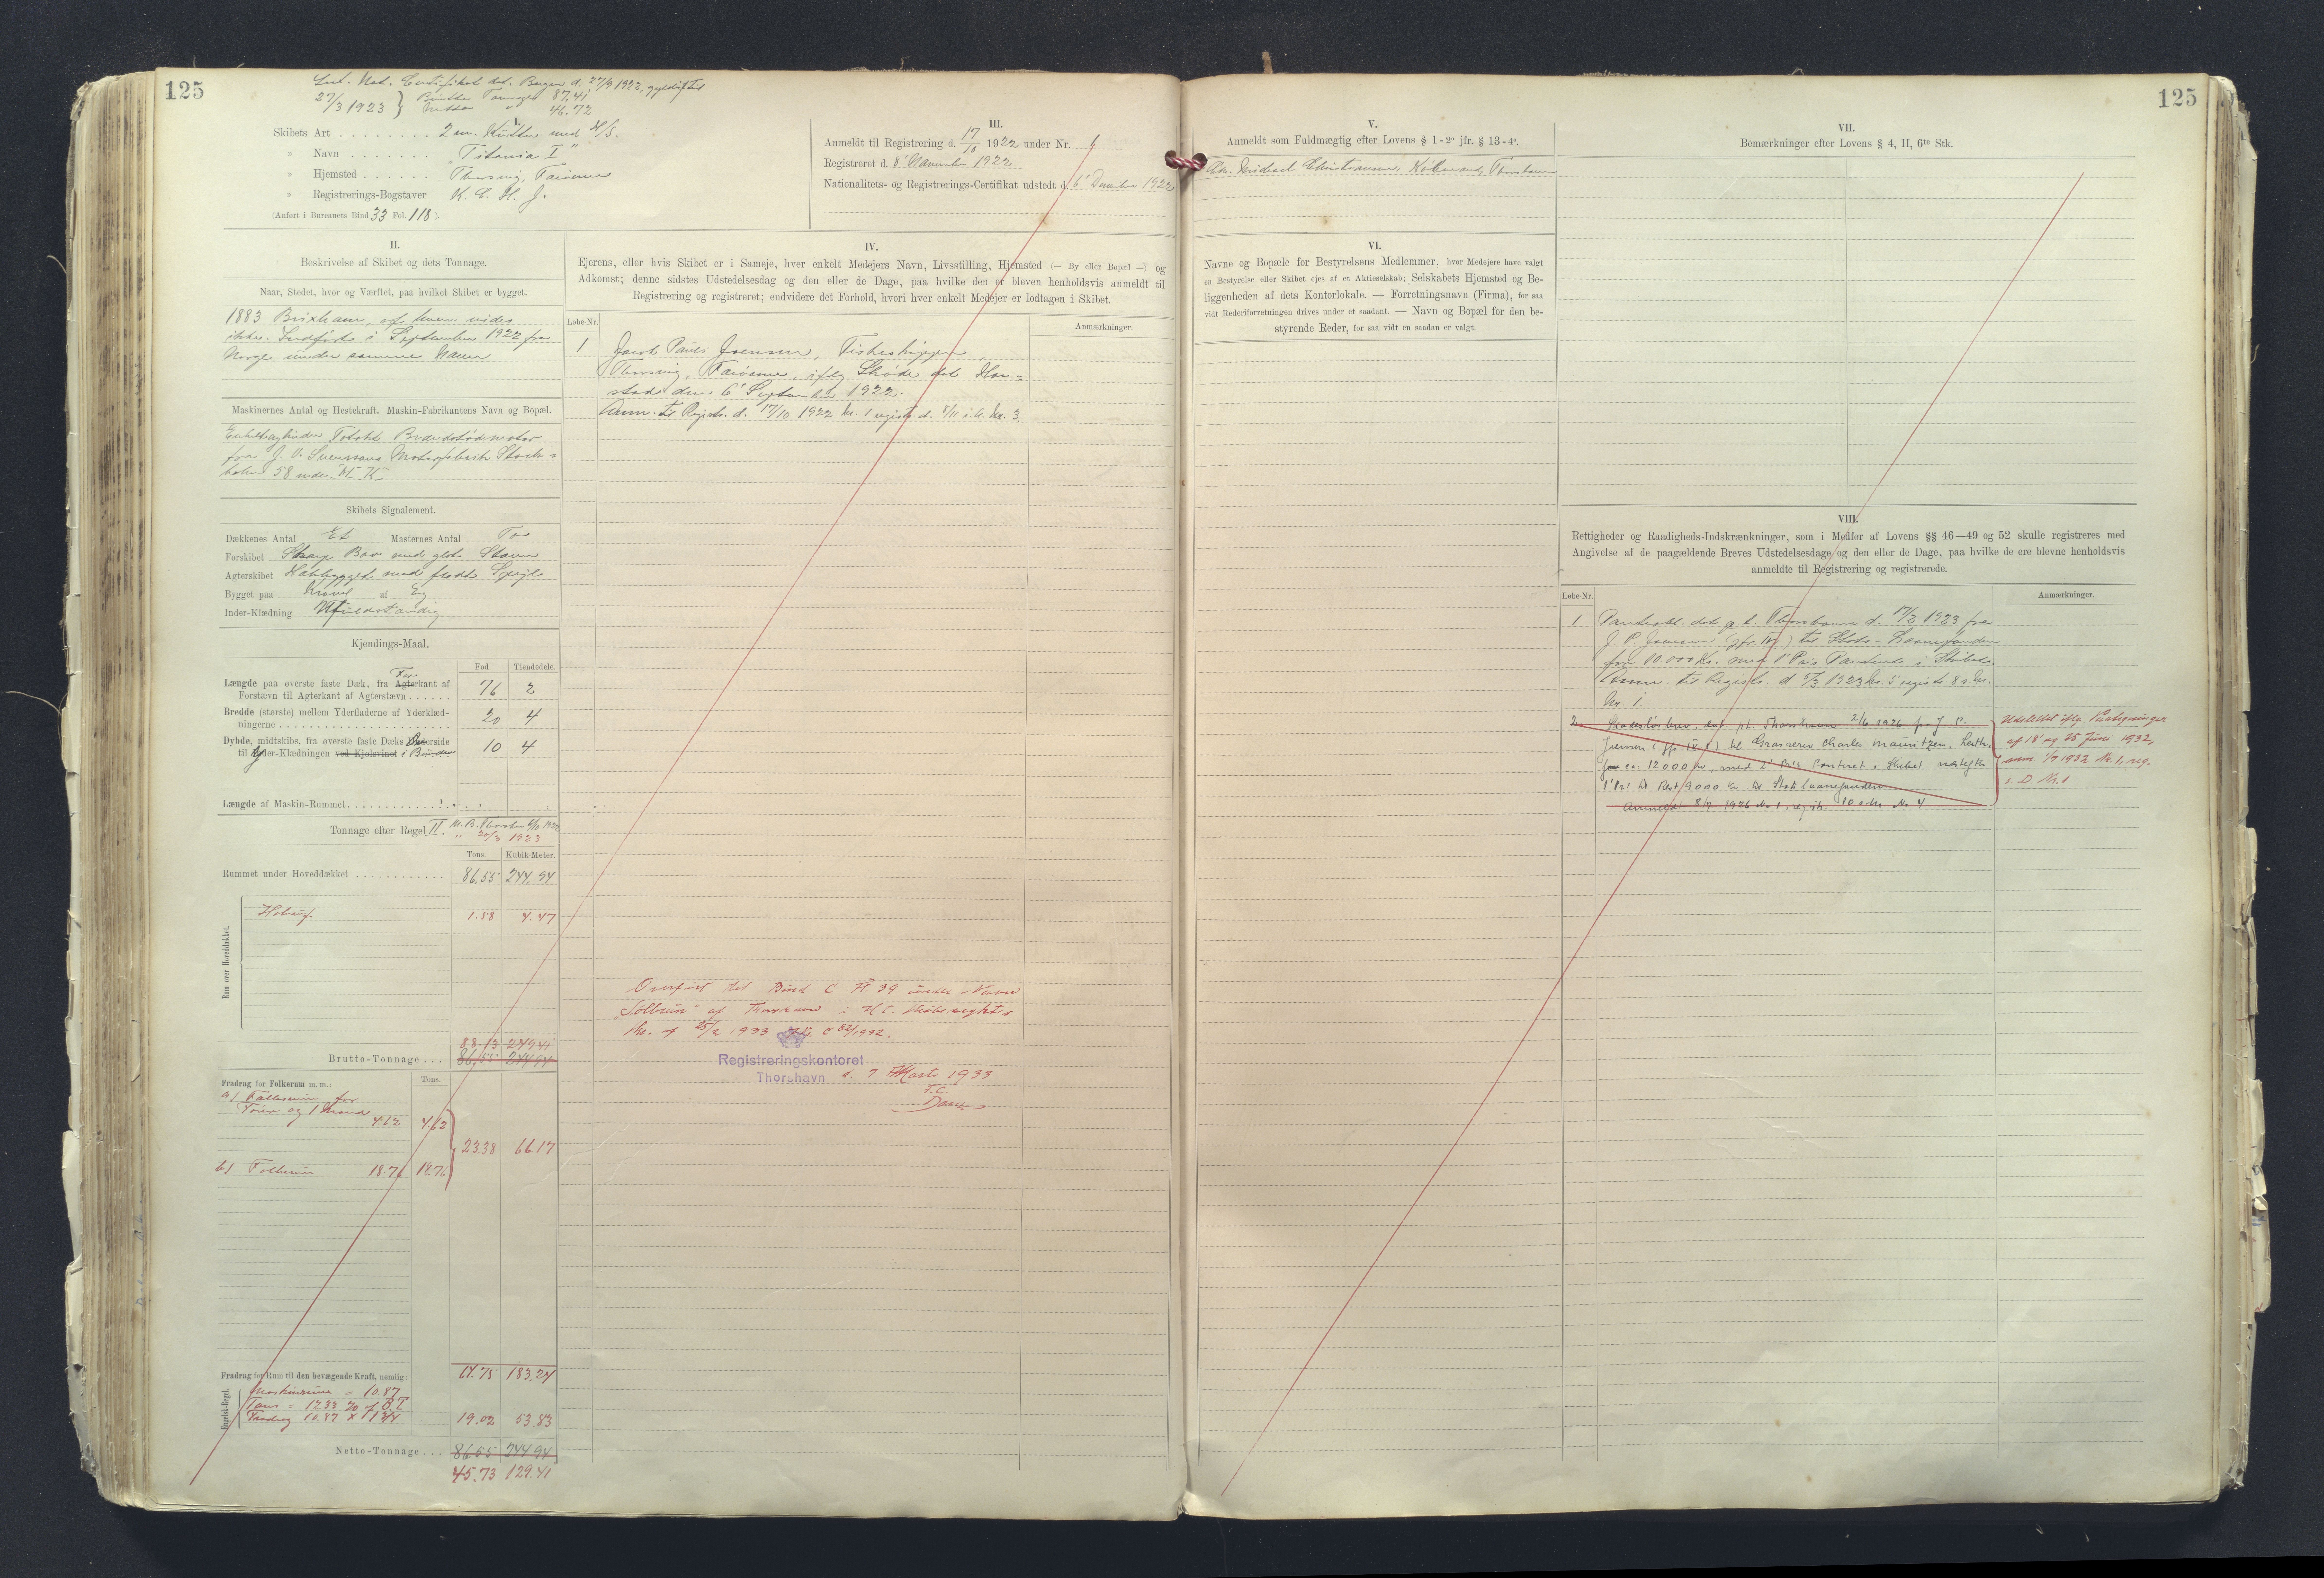 125
Int. Nat. Certifikat dat. Bergen d. 27/9 1922, gyldigt til
27/3 1923 } Brutto Tonnage 87,41
Netto " 46.72
I.
Skibets Art . . . . . . . . 2 m. Kutter med H/S.
» Navn . . . . . . . "Titania I"
» Hjemsted . . . . . . Tversvig, Færøerne
» Registrerings-Bogstaver
(Anført i Bureauets Bind 33 Fol. 118 ).
III.
Anmeldt til Registrering d. 17/10 1922 under Nr. 1
Registreret d. 8' November 1922
Nationalitets- og Registrerings-Certifikat udstedt d. 6' December 1922
II.
Beskrivelse af Skibet og dets Tonnage.
Naar, Stedet, hvor og Værftet, paa hvilket Skibet er bygget.
1883 Brixham, af hvem vides
ikke. Indført i September 1922 fra
Norge under samme Navn
Maskinernes Antal og Hestekraft. Maskin-Fabrikantens Navn og Bopæl.
Enkeltcylinder Totakt
fra J. V. Svensons Motorfabrik Stock-
holm 58
Skibets Signalement.
Dækkenes Antal Et Masternes Antal To
Forskibet Skarp Bov med glat Stævn
Agterskibet med fladt Spejl
Bygget paa Kravel af Eg
Inder-Klædning Ufuldstændig
Kjendings-Maal.
Fod. Tiendedele.
Længde paa øverste faste Dæk, fra Agterkant af For
Forstævn til Agterkant af Agterstævn . . . . . . 76 2
Bredde (største) mellem Yderfladerne af Yderklæd-
ningerne . . . . . . 20 4
Dybde, midtskibs, fra øverste faste Dæks Overside
til Inder-Klædningen ved Kjølsvinet i Bunden 10 4
Længde af Maskin-Rummet . . . . . .
Tonnage efter Regel II
" 20/3 1923
Tons. Kubik-Meter.
Rummet under Hoveddækket . . . . . . 86,55 244,94
Rum over Hoveddækket.
1.58 4.47
88.13 249.41
Brutto-Tonnage . . . 86,55 244,94
Fradrag for Folkerum m. m.: Tons.
a) for
og 1 Mand 4.62 4.62
23.38 66.17
b) Folkerum 18.76 18.76
64.75 183.24
Fradrag for Rum til den bevægende Kraft, nemlig:
Maskinrum = 10.87
Tons = 12.33 % af B.T.
Fradrag 10.87 × 1 3/4 19.02 53.83
Netto-Tonnage . . . 86.55 244.94
45.73 129.41
IV.
Ejerens, eller hvis Skibet er i Sameje, hver enkelt Medejers Navn, Livsstilling, Hjemsted (— By eller Bopæl —) og
Adkomst; denne sidstes Udstedelsesdag og den eller de Dage, paa hvilke den er bleven henholdsvis anmeldt til
Registrering og registreret; endvidere det Forhold, hvori hver enkelt Medejer er lodtagen i Skibet.
Løbe-Nr. Anmærkninger.
1 Jacob Pauli Joensen, Fiskeskipper,
Tversvig, Færøerne, ifølge Skøde dat.
den 6' September 1922.
Anm. til Registr. d. 17/10 1922 Nr. 1 registr. d. 8/11 s. A. Nr. 3
Overført til Bind C Fl. 39 under Navn
"Sólbrún" af Thorshavn
Nr. 25/2 1933 82/1932.
Registreringskontoret
Thorshavn d. 7 Marts 1933
F.C.
V.
Anmeldt som Fuldmægtig efter Lovens § 1-2° jfr. § 13-4°.
Michael Christiansen, Købmand, Thorshavn
VI.
Navne og Bopæle for Bestyrelsens Medlemmer, hvor Medejere have valgt
en Bestyrelse eller Skibet ejes af et Aktieselskab; Selskabets Hjemsted og Be-
liggenheden af dets Kontorlokale. — Forretningsnavn (Firma), for saa
vidt Rederiforretningen drives under et saadant. — Navn og Bopæl for den be-
styrende Reder, for saa vidt en saadan er valgt.
125
VII.
Bemærkninger efter Lovens § 4, II, 6te Stk.
VIII.
Rettigheder og Raadigheds-Indskrænkninger, som i Medfør af Lovens §§ 46—49 og 52 skulle registreres med
Angivelse af de paagældende Breves Udstedelsesdage og den eller de Dage, paa hvilke de ere blevne henholdsvis
anmeldte til Registrering og registrerede.
Løbe-Nr. Anmærkninger.
1 Pantobl. dat. Thorshavn d. 17/2 1923 fra
J. P. Joensen til Stats-Laanefonden
for 10.000 Kr. med 1' Pr. Panteret i Skibet.
Anm. til Registr. d. 5/3 1923 Nr. 5 registr. 8 s. M.
Nr. 1.
2 Skadesløsbrev, dat. Thorshavn 2/6 1926 fra J. P.
Joensen til Grosserer Charles Mauritzen, Leith,
for 12000 Kr., med 2' Pr. Panteret i Skibet næstefter
1' Pr. til Rest 9000 Kr. til Statslaanefonden
Anmeldt 8/7 1926 Nr. 1, registr. 10 s. M. Nr. 4
Udslettet ifølge Paategninger
af 18 og 25 Juni 1932,
anm. 1/7 1932 Nr. 1, reg.
s. D. Nr. 1